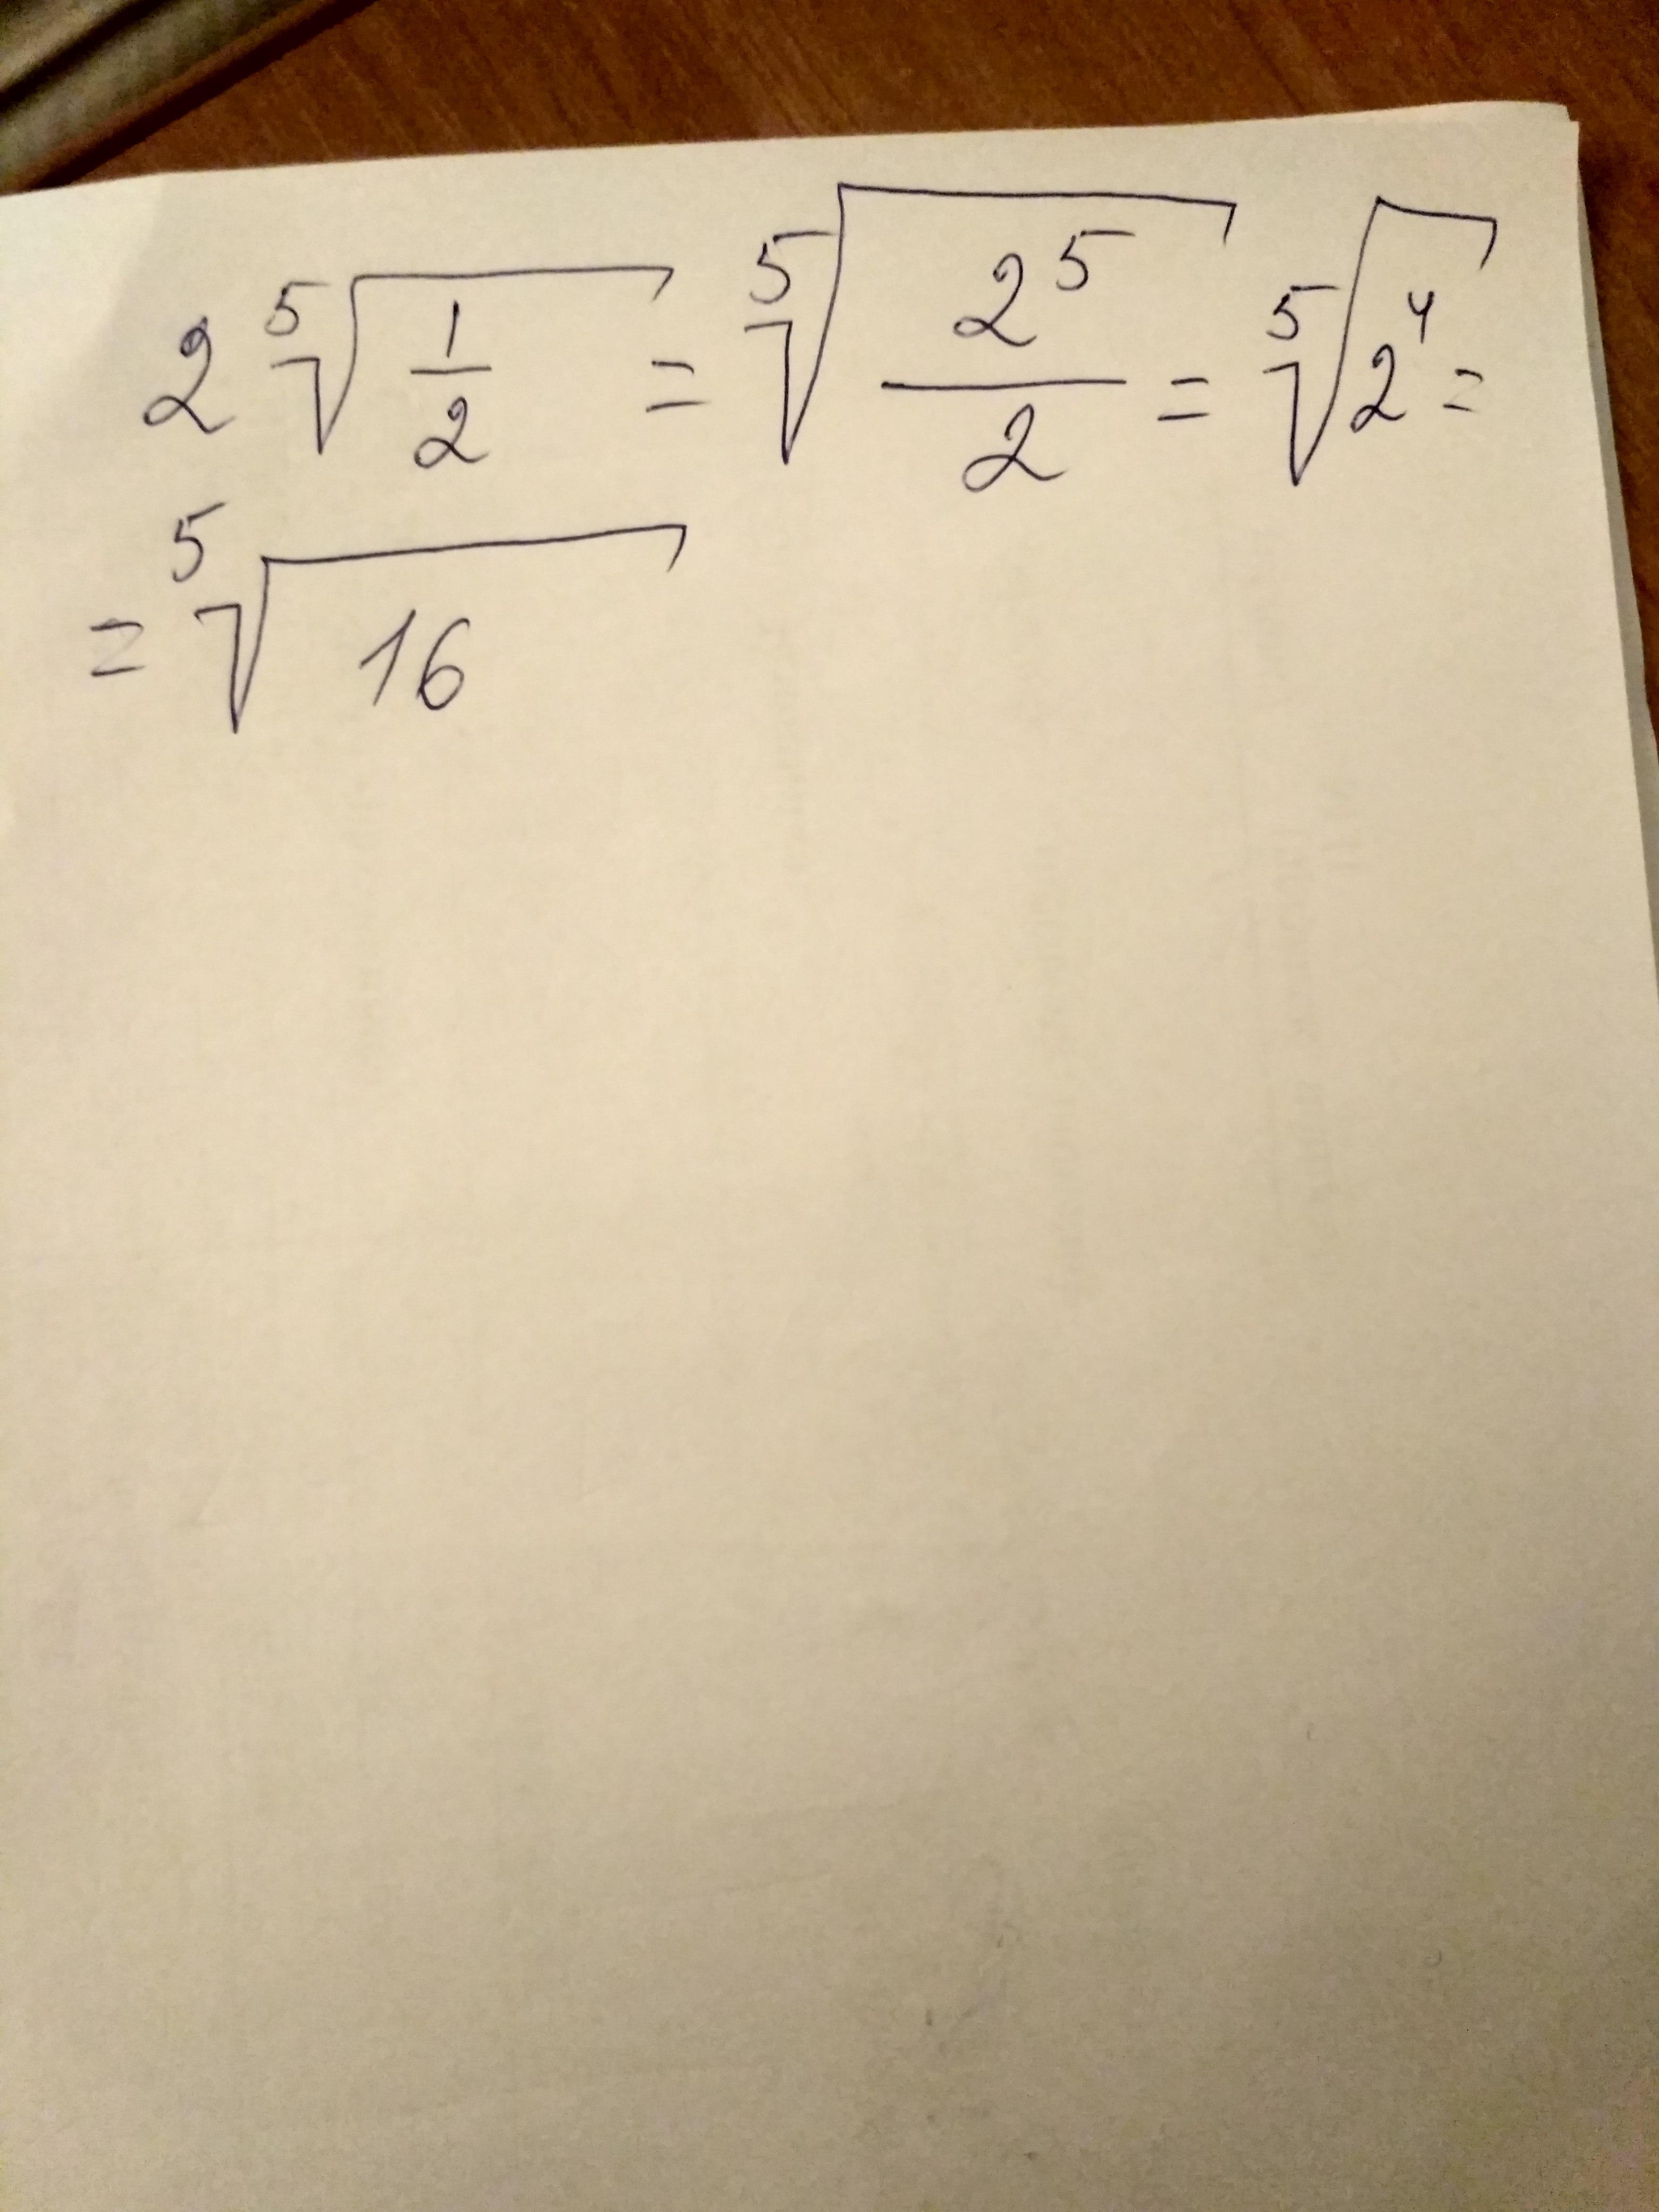 2 ⁵√(1/2) = ⁵√(2⁵/2) = ⁵√(2⁴) =
= ⁵√16